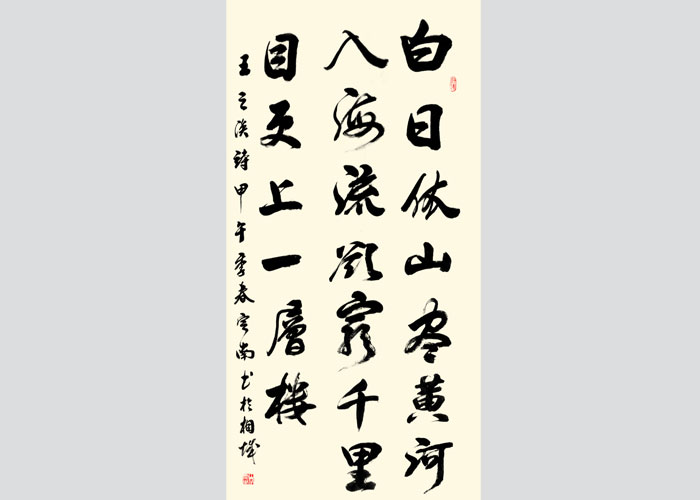 白日依山尽黄河
入海流欲穷千里
目更上一层楼
王之涣诗甲午季春宝南书于相城